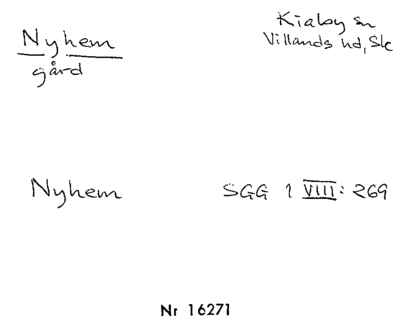 Nyhem
gård
Kiaby sn
Villands hd, Sk
Nyhem
SGG 1 VIII: 269
Nr 16271